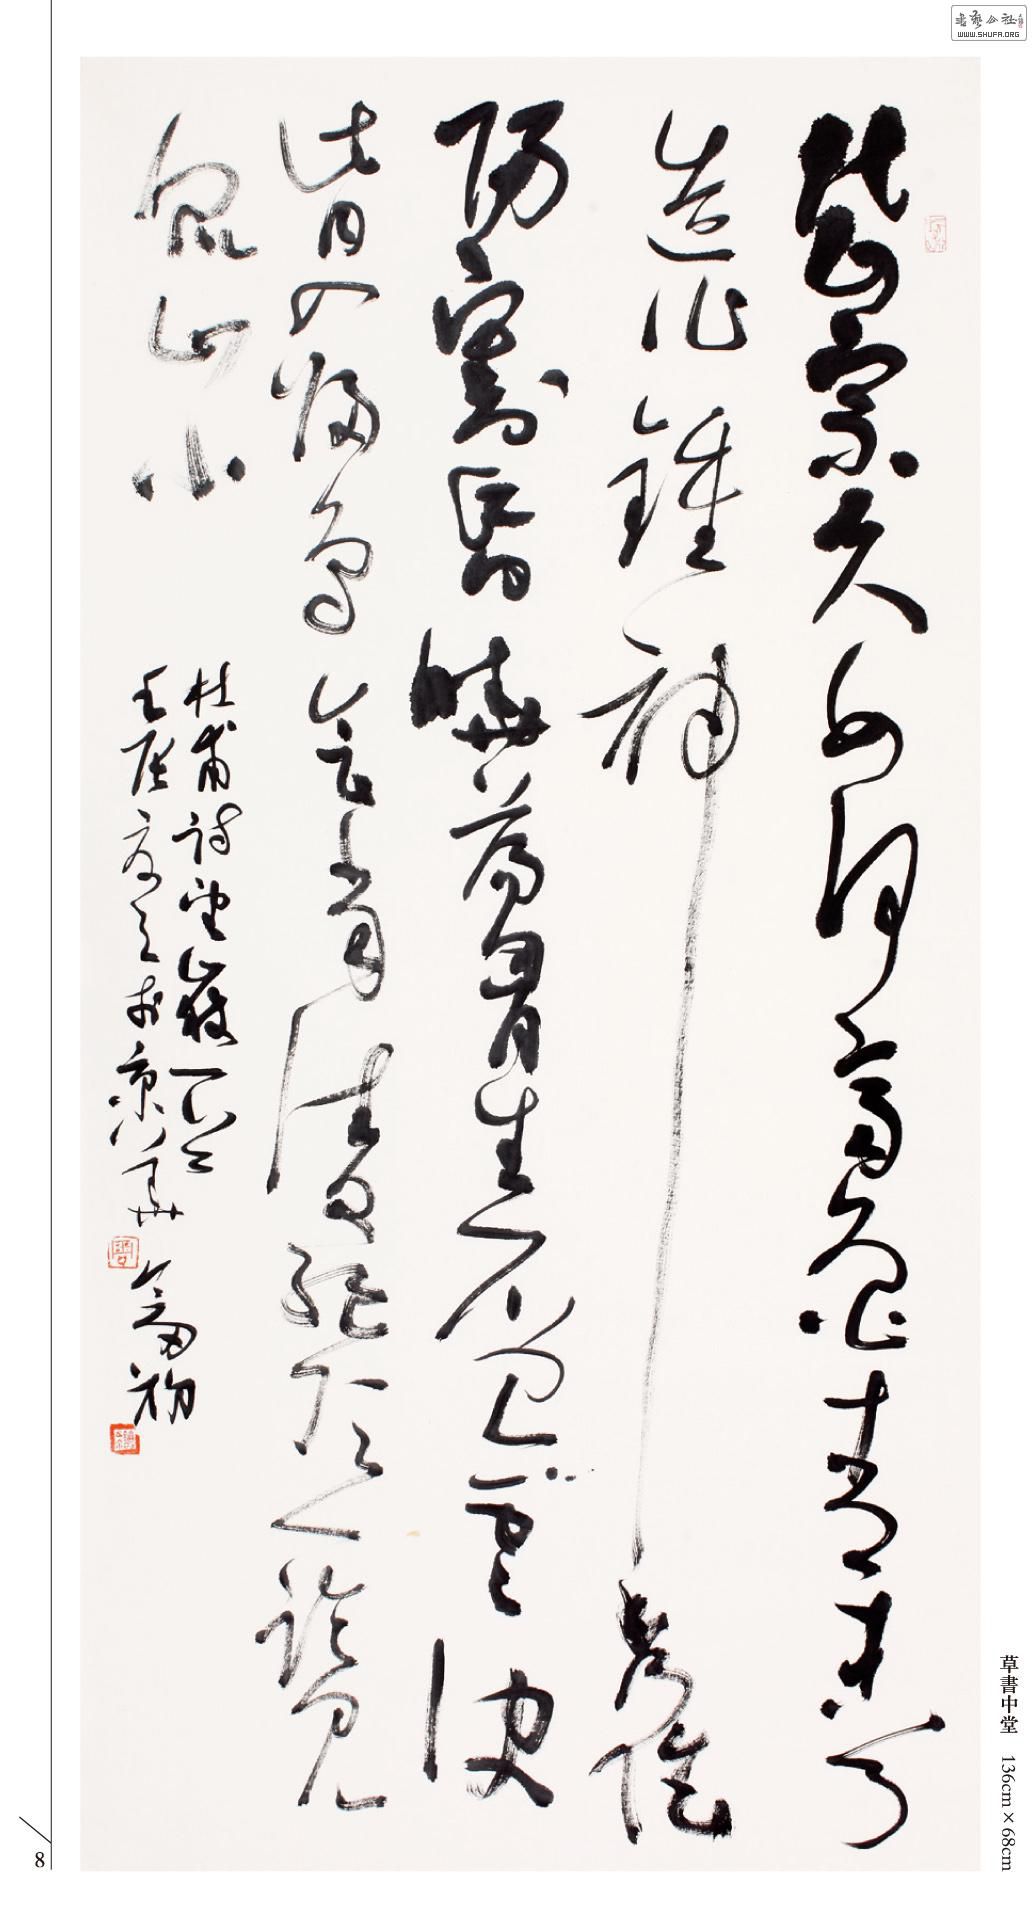 書藝公社
WWW.SHUFA.ORG
岱宗夫如何齊魯青未了
造化鍾神秀陰
陽割昏曉蕩胸生層雲決
眥入歸鳥會當凌絕頂一覽
眾山小
杜甫詩望嶽一首
壬辰夏之於京華
草書中堂 136cm×68cm
8